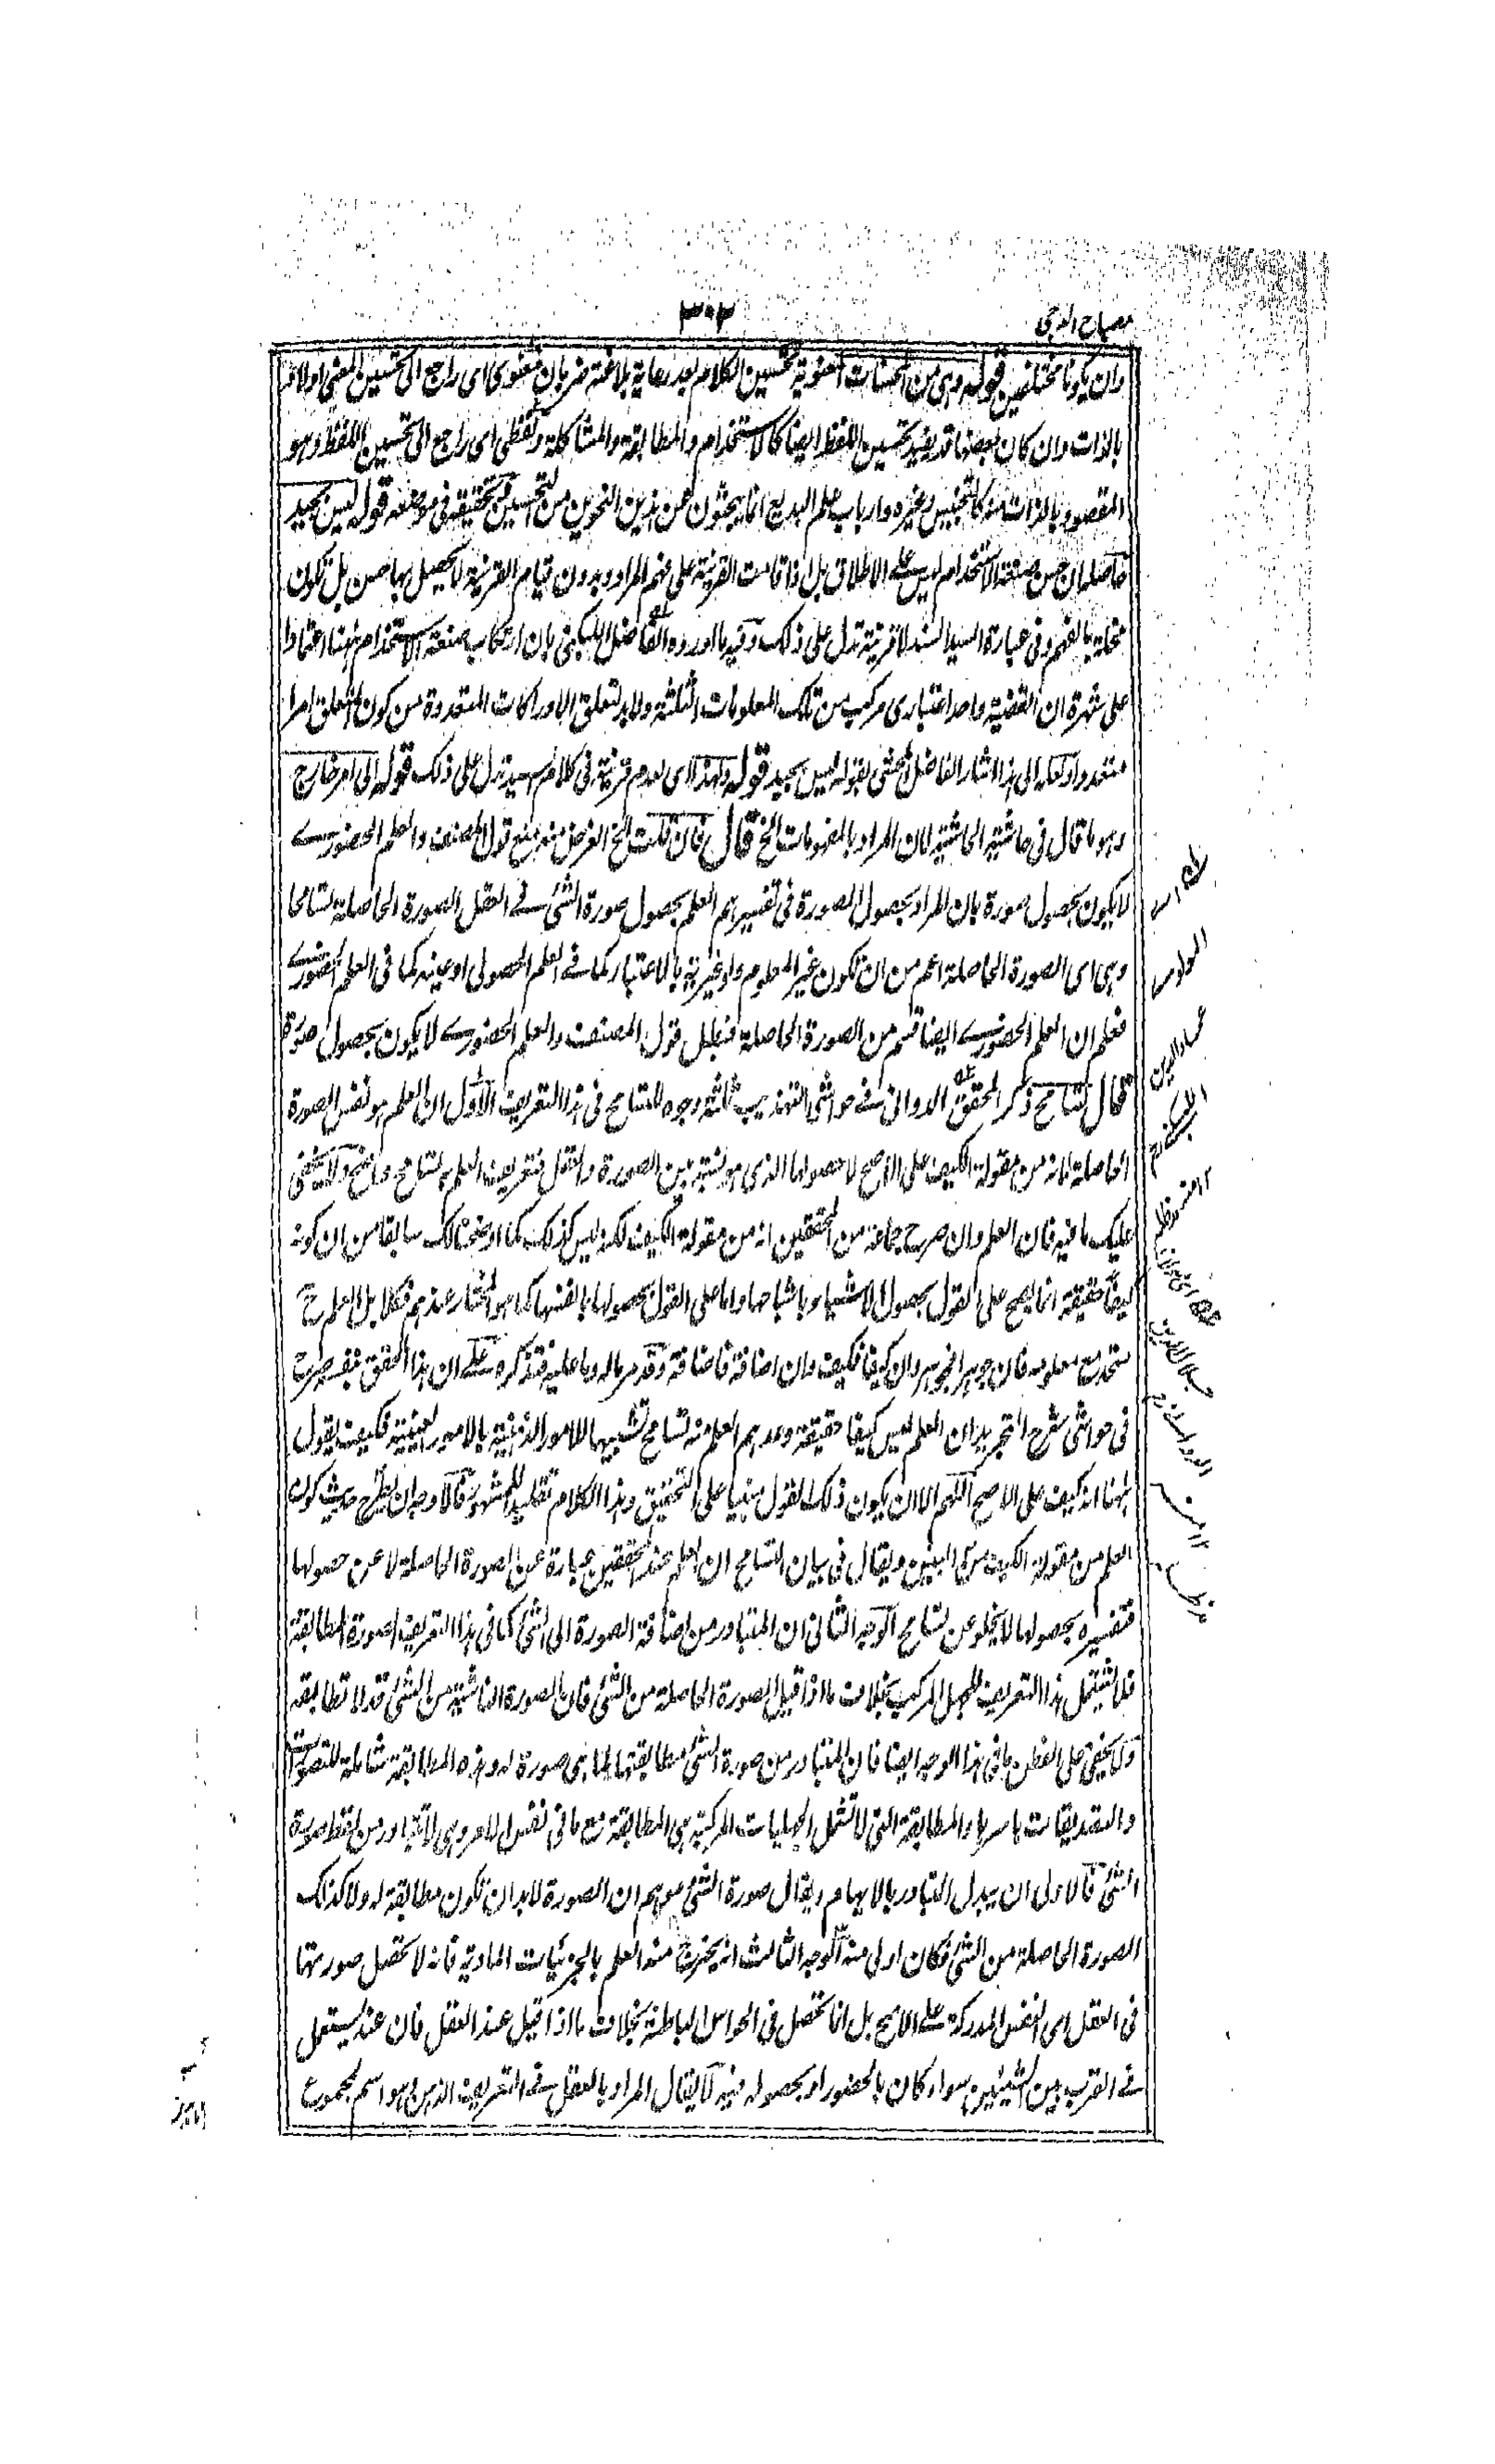 مصباح الدجى
٣٠٢
وان يكونا مختلفين قوله وهى من المحسنات المعنوية تحسين الكلام بعد رعاية بلاغته ضربان معنوى اى راجع الى تحسين المعنى اولا و
بالذات وان كان بعضها قد يفيد تحسين اللفظ ايضا كالاستخدام والمطابقة والمشاكلة ولفظى اى راجع الى تحسين اللفظ وهو
المقصود بالذات منه كالتجنيس وغيره وارباب علم البديع انما يبحثون عن هذين النحوين من التحسين تحقيقه فى موضعه قوله ليس بجيد
حاصله ان حسن صنعة الاستخدام ليس على الاطلاق بل اذا قامت القرينة على فهم المراد وبدون قيام القرينة لا يحصل بها حسن بل تكون
مخلة بالفهم وفى عبارة السيد السند لا قرينة تدل على ذلك وفيه ما اورده الفاضل اللبكنى بان ارتكاب صنعة الاستخدام ههنا اعتمادا
على شهرة ان القضية واحد اعتبارى مركب من تلك المعلومات الثلثة ولا بد لتعلق الادراكات المتعددة من كون المتعلق امرا
متعددا ولعله الى هذا اشار الفاضل المحشى بقوله ليس بجيد قوله ولهذا اى لعدم قرينة فى كلام السيد تدل على ذلك قوله الى امر خارج
وهو ما قال فى حاشية الحاشية لان المراد بالمفهومات الخ قال فان قلت الخ الغرض منه منع قول المصنف والعلم الحضورى
لا يكون بحصول صورة بان المراد بحصول الصورة فى تفسيرهم العلم بحصول صورة الشئ فى العقل الصورة الحاصلة تسامحا
وهى اى الصورة الحاصلة اعم من ان تكون غير المعلوم ولو غيرية بالاعتبار كما فى العلم الحصولى او عينه كما فى العلم الحضورى
فعلم ان العلم الحضورى ايضا قسم من الصورة الحاصلة فبطل قول المصنف والعلم الحضورى لا يكون بحصول صورة
قال تسامح ذكر المحقق الدوانى فى حواشى التهذيب ثلثة وجوه للتسامح فى هذا التعريف الاول ان العلم هو نفس الصورة
الحاصلة لانه من مقولة الكيف على الاصح لا حصولها الذى هو نسبة بين الصورة والعقل فتعريف العلم به تسامح واضح ولا يخفى
عليك ما فيه فان العلم وان صرح جماعة من المحققين انه من مقولة الكيف لكنه ليس كذلك كما اوضحنا لك سابقا من ان كونه
كيفا حقيقة انما يصح على القول بحصول الاشياء باشباحها واما على القول بحصولها بانفسها كما هو المختار عندهم فكلا بل العلم ح
متحد مع معلومه فان جوهرا فجوهر وان كيفا فكيف وان اضافة فاضافة وقد مر ماله وما عليه فتذكره على ان هذا المحقق بنفسه صرح
فى حواشى شرح التجريد ان العلم ليس كيفا حقيقة وعدهم العلم منه تسامح تشبيها للامور الذهنية بالامور العينية فكيف يقول
ههنا انه كيف على الاصح اللهم الا ان يكون ذلك القول مبنيا على التحقيق وهذا الكلام تقليدا للمشهور فالاوجه ان يطرح حديث كون
العلم من مقولة الكيف من البين ويقال فى بيان التسامح ان العلم عند المحققين عبارة عن الصورة الحاصلة لا عن حصولها
فتفسيره بحصولها لا يخلو عن تسامح الوجه الثانى ان المتبادر من اضافة الصورة الى الشئ كما فى هذا التعريف الصورة المطابقة
فلا يشتمل هذا التعريف للجهل المركب بخلاف ما اذا قيل الصورة الحاصلة من الشئ فان الصورة الناشية من الشئ قد لا تطابقه
ولا يخفى على الفطن ما فى هذا الوجه ايضا فان المتبادر من صورة الشئ مطابقتها لما هى صورة له وهذه المطابقة شاملة للتصورات
والتصديقات باسرها والمطابقة التى لا تشمل الجهليات المركبة هى المطابقة مع ما فى نفس الامر وهى لا تتبادر من لفظ صورة
الشئ فالاولى ان يبدل التبادر بالايهام ويقال صورة الشئ موهم ان الصورة لابد ان تكون مطابقة له ولا كذلك
الصورة الحاصلة من الشئ فكان اولى منه الوجه الثالث انه يخرج منه العلم بالجزئيات المادية فانه لا تحصل صورتها
فى العقل اى النفس المدركة على الاصح بل انما تحصل فى الحواس الباطنة بخلاف ما اذا قيل عند العقل فان عند يستعمل
فى القرب بين الشيئين سواء كان بالحضور او بحصوله فيه لا يقال المراد بالعقل فى التعريف الذهن وهو اسم لمجموع
المولوى
عماد الدين
اللبكنى
١٢ منه مد ظله
جلال الدين
١٢ منه